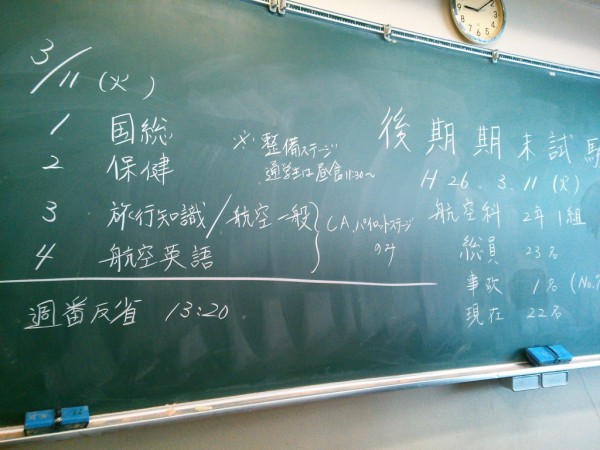 3/11(火)
1 国総
2 保健
3 旅行知識/航空一般
4 航空英語
CA、パイロットステージ
のみ
※整備ステージ
通学生は昼食11:30〜
週番反省 13:20
後期期末試験
H26.3.11(火)
航空科 2年1組
総員 23名
事欠 1名(No.
現在 22名